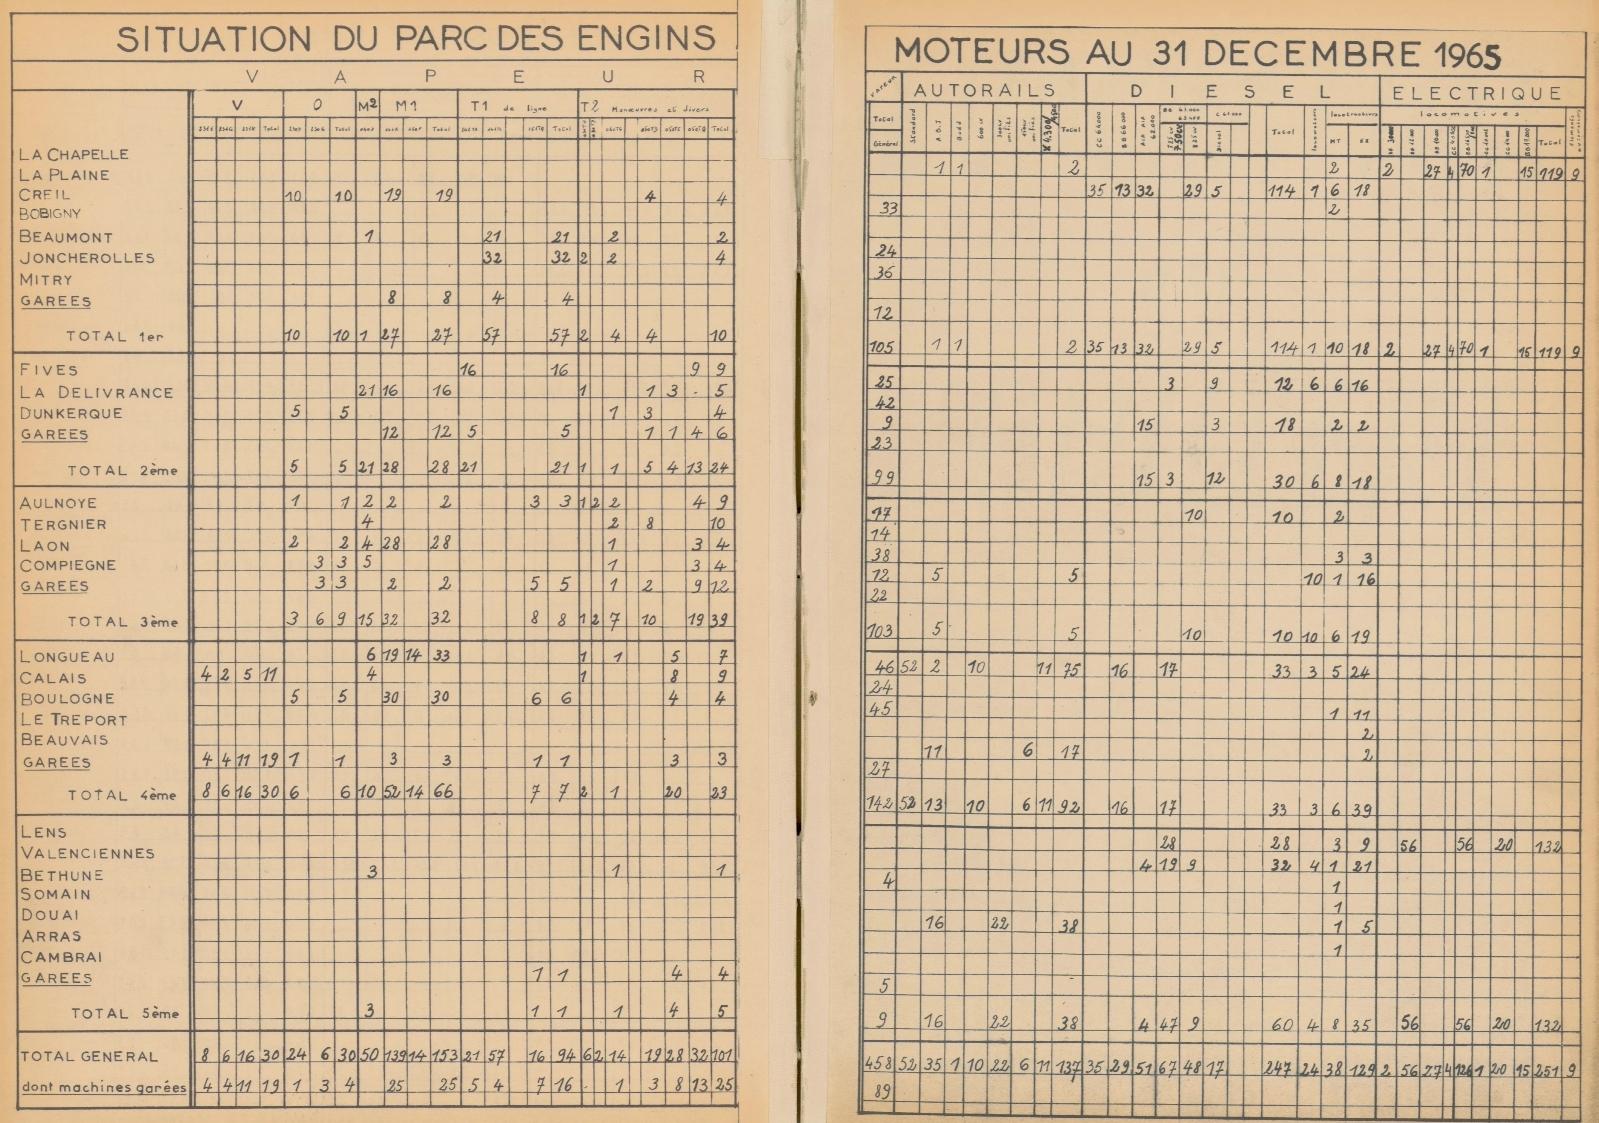 SITUATION DU PARC DES ENGINS
V A P E U R
V O M2 M1 T1 de ligne T2 Manœuvres et divers
Total Total Total Total Total
LA CHAPELLE
LA PLAINE
CREIL 10 10 19 19 4 4
BOBIGNY
BEAUMONT 1 21 21 2 2
JONCHEROLLES 32 32 2 2 4
MITRY
GAREES 8 8 4 4
TOTAL 1er 10 10 1 27 27 57 57 2 4 4 10
FIVES 16 16 9 9
LA DELIVRANCE 21 16 16 1 1 3 . 5
DUNKERQUE 5 5 1 3 4
GAREES 12 12 5 5 1 1 4 6
TOTAL 2ème 5 5 21 28 28 21 21 1 1 5 4 13 24
AULNOYE 1 1 2 2 2 3 3 1 2 2 4 9
TERGNIER 4 2 8 10
LAON 2 2 4 28 28 1 3 4
COMPIEGNE 3 3 5 1 3 4
GAREES 3 3 2 2 5 5 1 2 9 12
TOTAL 3ème 3 6 9 15 32 32 8 8 1 2 7 10 19 39
LONGUEAU 6 19 14 33 1 1 5 7
CALAIS 4 2 5 11 4 1 8 9
BOULOGNE 5 5 30 30 6 6 4 4
LE TREPORT
BEAUVAIS
GAREES 4 4 11 19 1 1 3 3 1 1 3 3
TOTAL 4ème 8 6 16 30 6 6 10 52 14 66 7 7 2 1 20 23
LENS
VALENCIENNES
BETHUNE 3 1 1
SOMAIN
DOUAI
ARRAS
CAMBRAI
GAREES 1 1 4 4
TOTAL 5ème 3 1 1 1 4 5
TOTAL GENERAL 8 6 16 30 24 6 30 50 139 14 153 21 57 16 94 6 2 14 19 28 32 101
dont machines garées 4 4 11 19 1 3 4 25 25 5 4 7 16 . 1 3 8 13 25
MOTEURS AU 31 DECEMBRE 1965
VAPEUR AUTORAILS D I E S E L ELECTRIQUE
locomotives
Total Général Standard Total Total Total
1 1 2 2 2 27 4 70 1 15 119 9
35 13 32 29 5 114 1 6 18
33 2
24
36
12
105 1 1 2 35 13 32 29 5 114 1 10 18 2 27 4 70 1 15 119 9
25 3 9 12 6 6 16
42
9 15 3 18 2 2
23
99 15 3 12 30 6 8 18
17 10 10 2
14
38 3 3
12 5 5 10 1 16
22
103 5 5 10 10 10 6 19
46 52 2 10 11 75 16 17 33 3 5 24
24
45 1 11
2
11 6 17 2
27
142 52 13 10 6 11 92 16 17 33 3 6 39
28 28 3 9 56 56 20 132
4 19 9 32 4 1 21
4 1
1
16 22 38 1 5
1
5
9 16 22 38 4 47 9 60 4 8 35 56 56 20 132
458 52 35 1 10 22 6 11 137 35 29 51 67 48 17 247 24 38 129 2 56 27 4 126 1 20 15 251 9
89